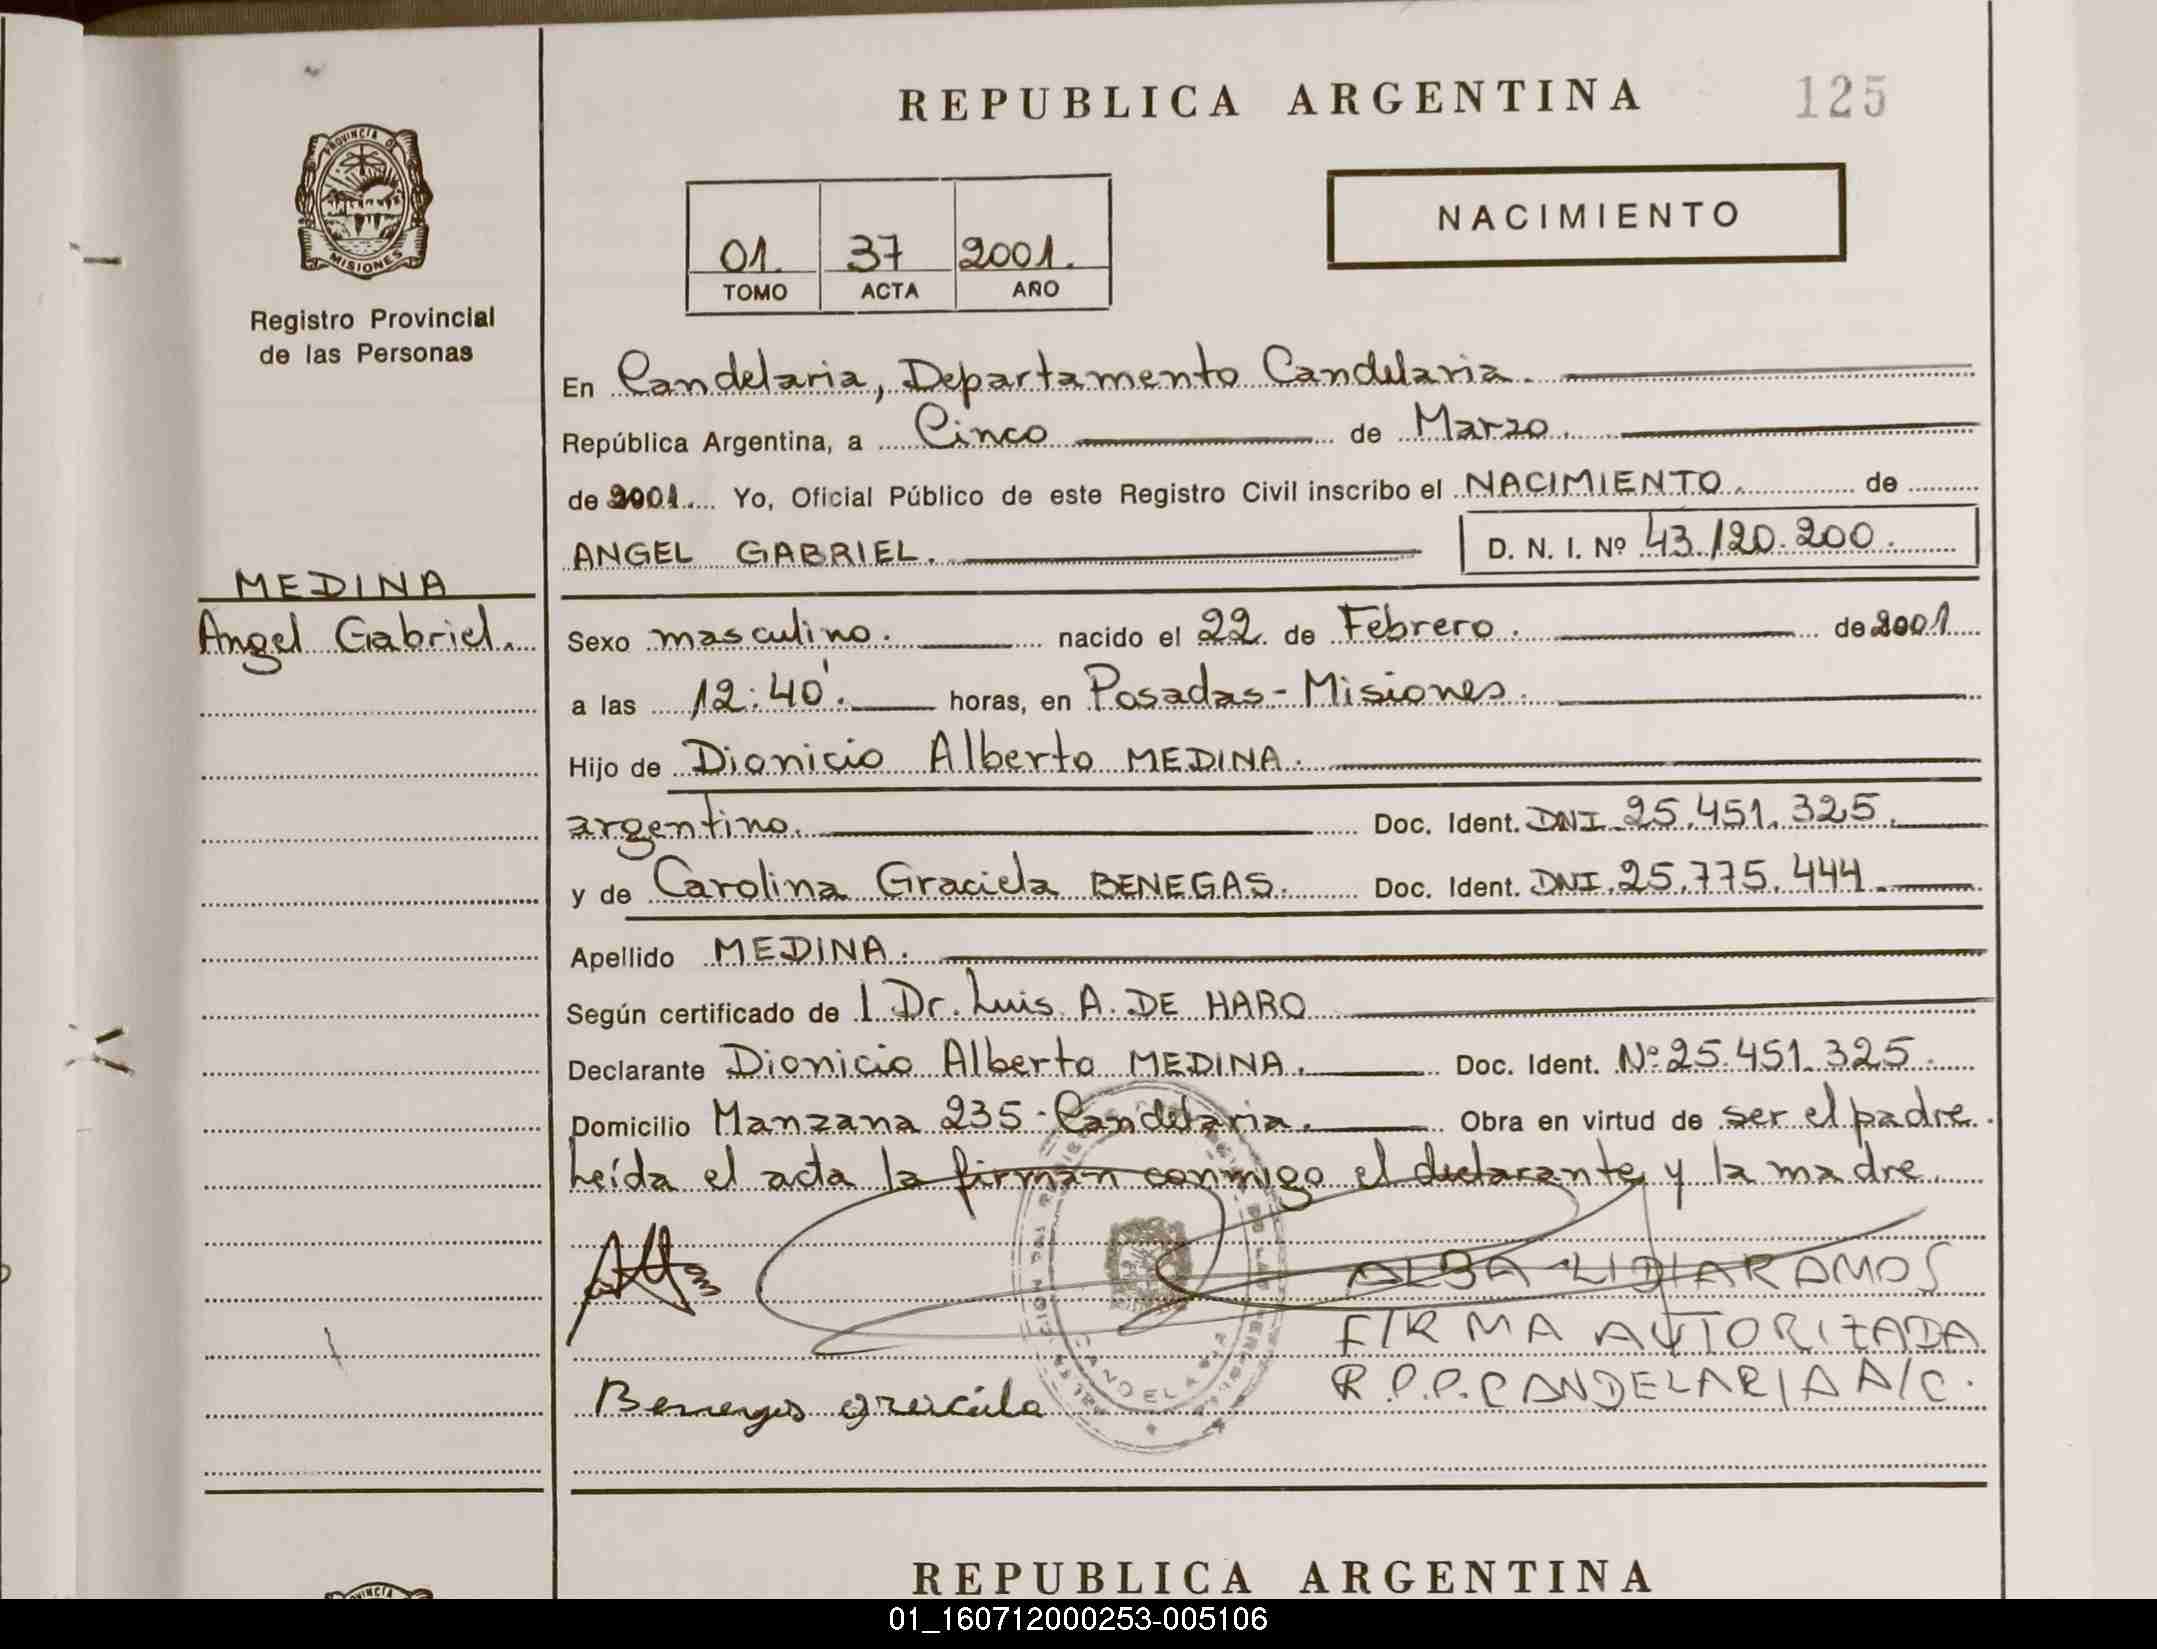 REPUBLICA ARGENTINA 125
PROVINCIA DE
MISIONES
Registro Provincial
de las Personas
NACIMIENTO
01. 37 2001.
TOMO ACTA AÑO
En Candelaria, Departamento Candelaria.
República Argentina, a Cinco de Marzo.
de 2001. Yo, Oficial Público de este Registro Civil inscribo el NACIMIENTO. de
ANGEL GABRIEL. D. N. I. Nº 43.120.200.
MEDINA
Angel Gabriel.
Sexo masculino. nacido el 22 de Febrero. de 2001
a las 12:40'. horas, en Posadas-Misiones.
Hijo de Dionicio Alberto MEDINA.
argentino. Doc. Ident. DNI. 25.451.325.
y de Carolina Graciela BENEGAS. Doc. Ident. DNI. 25.775.444.
Apellido MEDINA.
Según certificado de l Dr. Luis A. DE HARO
Declarante Dionicio Alberto MEDINA. Doc. Ident. Nº 25.451.325.
Domicilio Manzana 235 - Candelaria. Obra en virtud de ser el padre.
Leída el acta la firman conmigo el declarante y la madre
ALBA LIDIA RAMOS
FIRMA AUTORIZADA
R.P.P. CANDELARIA A/C.
CANDELARIA
REPUBLICA ARGENTINA
01_160712000253-005106